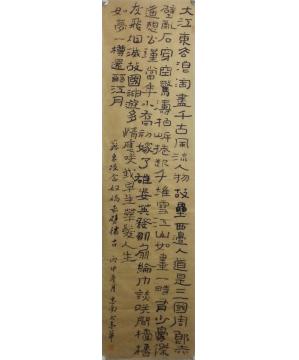 大江東去浪淘盡千古風流人物故壘西邊人道是三國周郎赤
壁亂石穿空驚濤拍岸捲起千堆雪江山如畫一時多少豪傑
遥想公瑾當年小喬初嫁了雄姿英發羽扇綸巾談笑間檣櫓
灰飛烟滅故國神遊多情應笑我早生華髮人生
如夢一樽還酹江月
蘇東坡念奴嬌赤壁懷古 丙申